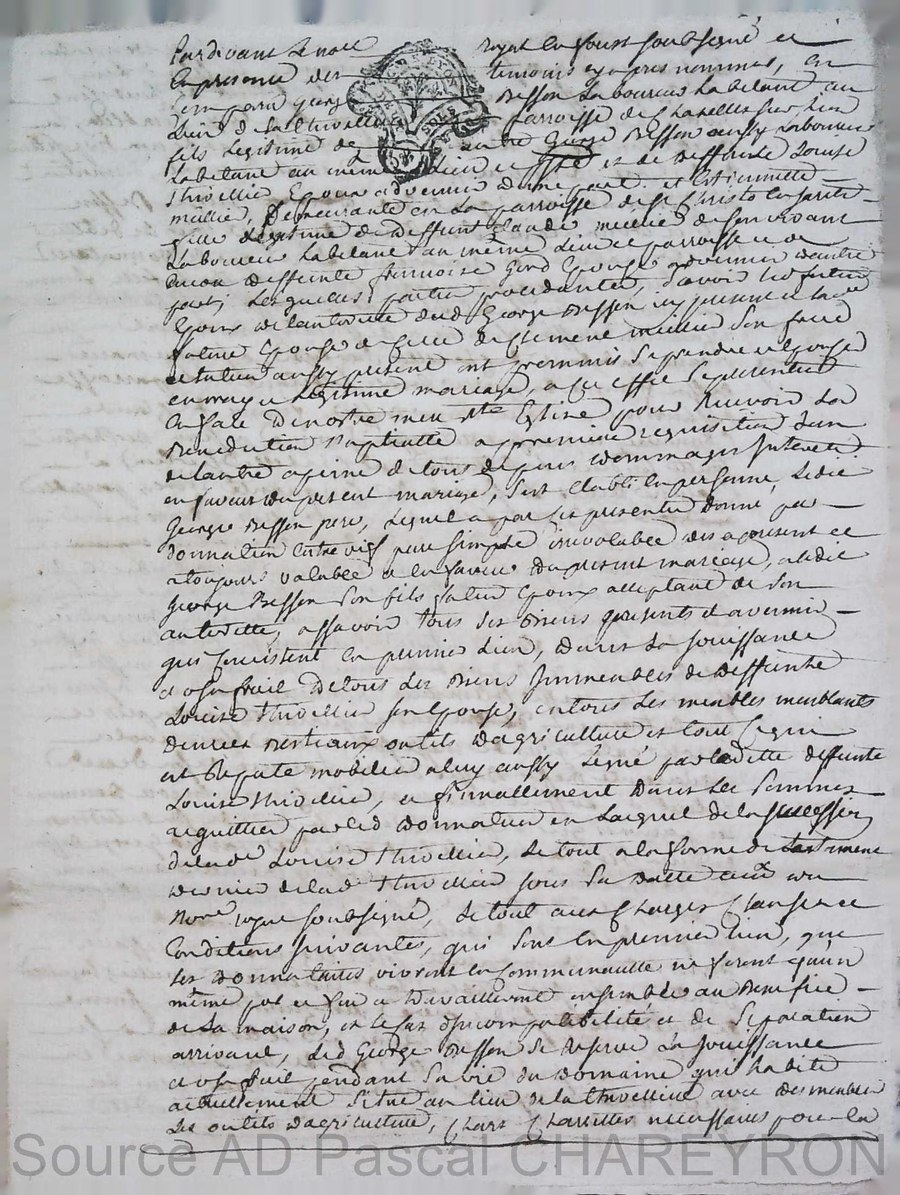 Pardevant le no.re royal en foust soubsigné et
en presence des temoins cy apres nommes, on
comparu george Besson laboureur habitant au
Lieu de la thivellie parroisse de Chazelles sur Lion
fils legitime de autre George Besson aussy laboureur
habitant au meme lieu et et de deffunte Louise
thivellier Epoux advenir d'une part. et Estiennette
millie, Demeurante en la parroisse de st Christo en jarets
fille legitime de deffunt Claude millie de son vivant
Laboureur habitant au même lieu et parroisse et de
deffunte françoise Epouse advenir d'autre
part, Lesquelles parties procedantes, scavoir led futur
Epoux de l'authorité dud George Besson icy present et lad.e
future Epouse de celle de millie son frere
aussy present ont prommis se prendre et Epouser
en vray et Legitime mariage, a cet effet se presenter
en face de nostre mere s.te Eglise pour recevoir la
Benediction nuptialle a premiere requisition l'un
de l'autre a peine de tous depens dommages Interets
en faveur du present mariage, s'est Etabli en personne, Ledit
George Besson pere, Lequel a par ces presentes donné par
donnation entre vifs pure simple irrevocable des a present et
a toujours valable et en faveur du present mariage, audit
George Besson son fils futur Epoux acceptant de son
authorité, assavoir tous ses biens presents et a venir
qui consistent en premier lieu, dans la jouissance
et usufruit de tous les biens Immeubles de deffunte
Louise thivellier son Epouse, en tous les meubles meublants
denrées bestiaux outils d'agriculture et tout ce qui
est reputé mobilier a luy aussy Legué par laditte deffunte
Louise thivellier, et finnallement dans les sommes
acquittées par led donnateur en Lacquit de la succession
de lad.e Louise thivellier, le tout a la forme du testament
dernier de lad.e thivellier sous sa datte receu
No.re royal soubsigné, le tout aux Charges Clauses et
Conditions suivantes, qui sont en premier lieu, que
les donnataires vivront en Communauté ne feront qu'un
même pot et feu et travailleront ensemble au Benefice
de la maison, et le cas d'incompatibilité et de separation
arrivant, Led George Besson se reserve la jouissance
et usufruit pendant sa vie du domaine qu'il habite
actuellement situé au lieu de la thivellier avec des meubles
des outils d'agriculture, Chars Charettes necessaires pour la
Source AD Pascal CHAREYRON